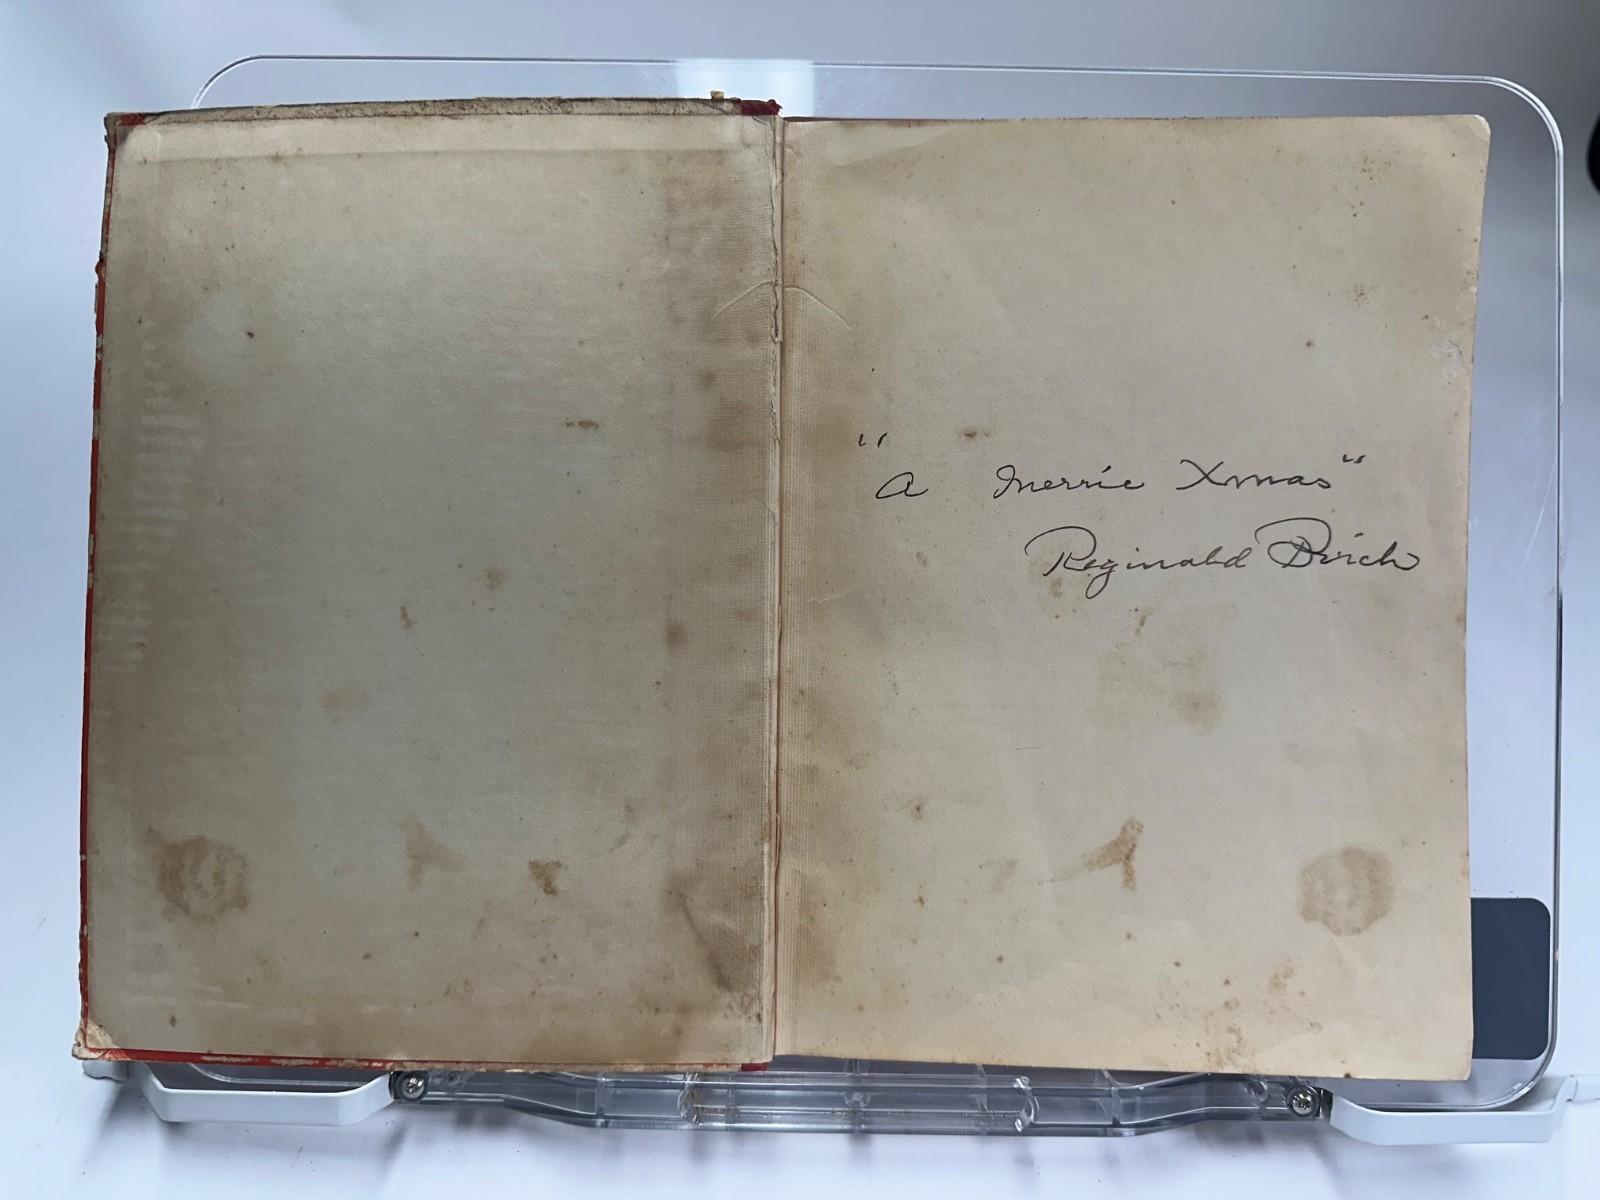 "A Merrie Xmas"
Reginald Birch